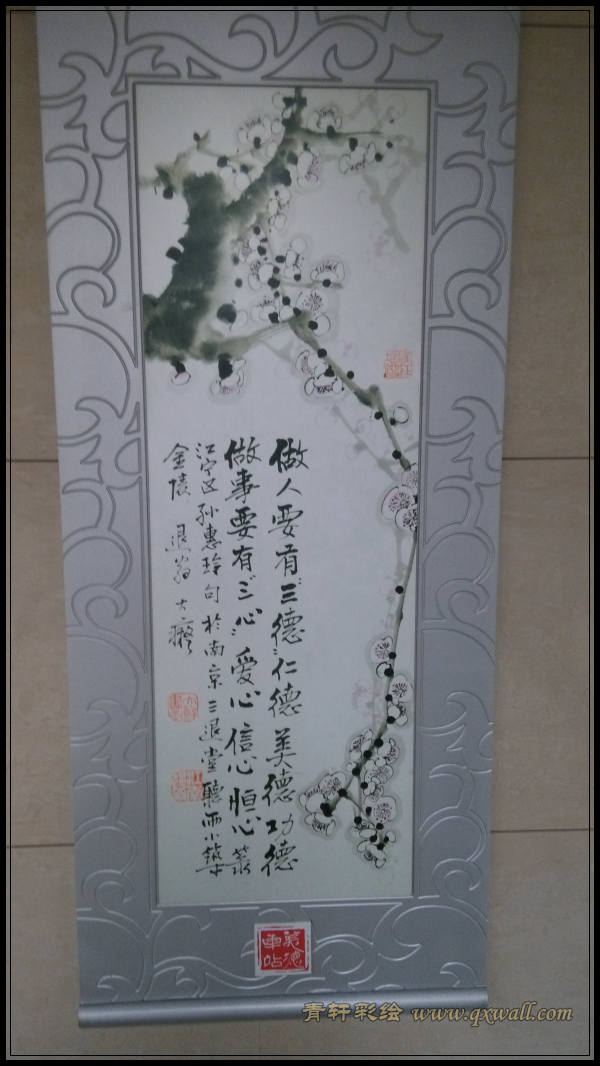 做人要有“三德”仁德 美德 功德
做事要有“三心”爱心 信心 恒心
江宁区孙惠玲句 於南京三退堂聽雨小築
金陵 退翁 大癡
美德
車站
青轩彩绘 www.qxwall.com